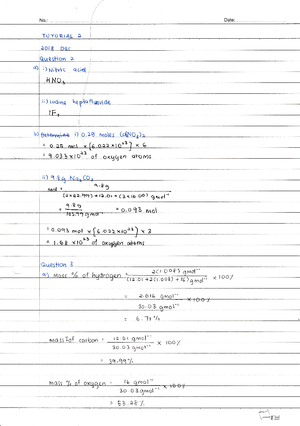 No.: Date:
TUTORIAL 2
2018 DEC
Question 2
a) i) Nitric acid
HNO₃
ii) Iodine heptafluoride
IF₇
b) Determine i) 0.25 moles Ca(NO₃)₂
= 0.25 mol × (6.022 × 10²³) × 6
= 9.033 × 10²³ of oxygen atoms
ii) 9.8g Na₂CO₃
mol = 9.8g / (2×22.99) + 12.01 + (3×16.00) gmol⁻¹
= 9.8g / 105.99 gmol⁻¹ = 0.093 mol
= 0.093 mol × (6.022×10²³) × 3
= 1.68 × 10²³ of oxygen atoms
Question 3
a) mass % of hydrogen = 2(1.008) gmol⁻¹ / (12.01 + 2(1.008) + 16) gmol⁻¹ × 100%
= 2.016 gmol⁻¹ / 30.03 gmol⁻¹ × 100%
= 6.71%
mass % of carbon = 12.01 gmol⁻¹ / 30.03 gmol⁻¹ × 100%
= 39.99%
mass % of oxygen = 16 gmol⁻¹ / 30.03 gmol⁻¹ × 100%
= 53.28%